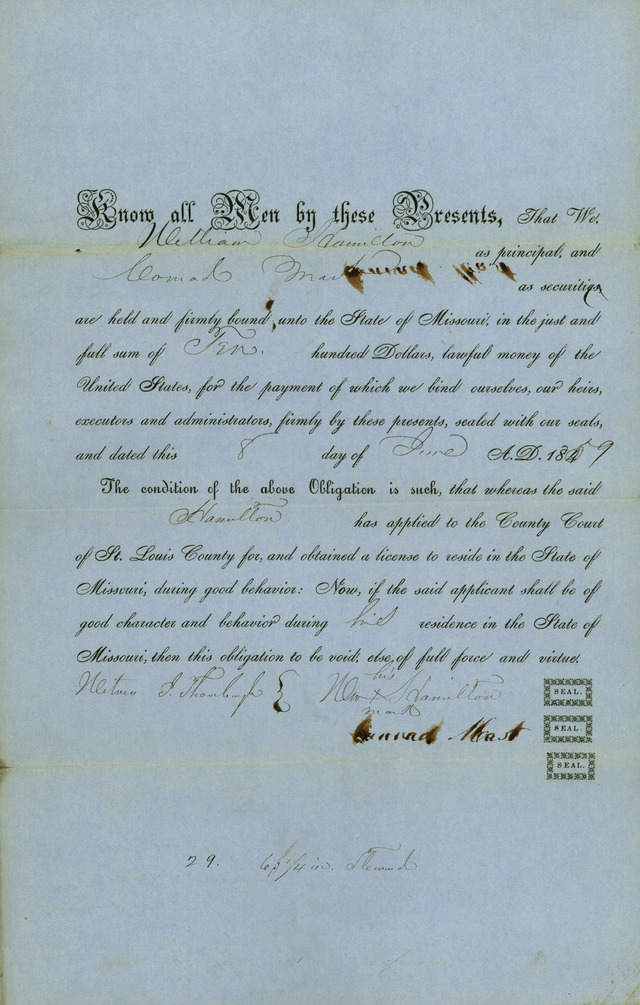 Know all Men by these Presents, That We,
William Hamilton
as principal, and
Conrad Mast
as securities
are held and firmly bound, unto the State of Missouri, in the just and
full sum of Ten. hundred Dollars, lawful money of the
United States, for the payment of which we bind ourselves, our heirs,
executors and administrators, firmly by these presents, sealed with our seals,
and dated this 8 day of June A.D. 1859
The condition of the above Obligation is such, that whereas the said
Hamilton has applied to the County Court
of St. Louis County for, and obtained a license to reside in the State of
Missouri, during good behavior: Now, if the said applicant shall be of
good character and behavior during his residence in the State of
Missouri, then this obligation to be void, else of full force and virtue.
his
Witness J. Thornburgh Wm x Hamilton SEAL.
mark
Conrad Mast SEAL.
SEAL.
29. 6/3 1/4 in. Steward